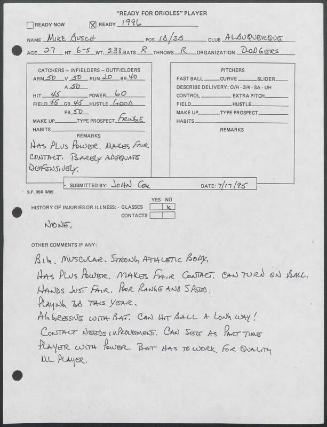 "READY FOR ORIOLES" PLAYER
READY NOW ☒ READY 1996
NAME MIKE BUSCH POS 1B/3B CLUB ALBUQUERQUE
AGE 27 HT 6-5 WT BATS R THROWS R ORGANIZATION DODGERS
CATCHERS - INFIELDERS - OUTFIELDERS
ARM 50 50 RUN 20 40
A 50
HIT 45 POWER 60
FIELD 45 HUSTLE GOOD
50
MAKE UP TYPE PROSPECT FRINGE
HABITS
REMARKS
HAS PLUS POWER. MAKES FAIR
CONTACT. BARELY ADEQUATE
DEFENSIVELY.
PITCHERS
FAST BALL CURVE SLIDER
DESCRIBE DELIVERY: O/H - 3/4 - SA - UH
CONTROL EXTRA PITCH
FIELD HUSTLE
MAKE UP TYPE PROSPECT
HABITS
REMARKS
SUBMITTED BY: JOHN COX DATE: 7/17/95
YES NO
HISTORY OF INJURIES OR ILLNESS: - GLASSES X
CONTACTS
NONE.
OTHER COMMENTS IF ANY:
BIG. MUSCULAR. STRONG ATHLETIC BODY.
HAS PLUS POWER. MAKES FAIR CONTACT. CAN TURN ON BALL.
HANDS JUST FAIR. POOR RANGE AND SPEED.
PLAYING 3B THIS YEAR.
AGGRESSIVE WITH BAT. CAN HIT BALL A LONG WAY!
CONTACT NEEDS IMPROVEMENT. CAN SEE AS PART TIME
PLAYER WITH POWER BUT HAS TO WORK FOR QUALITY
ML PLAYER.